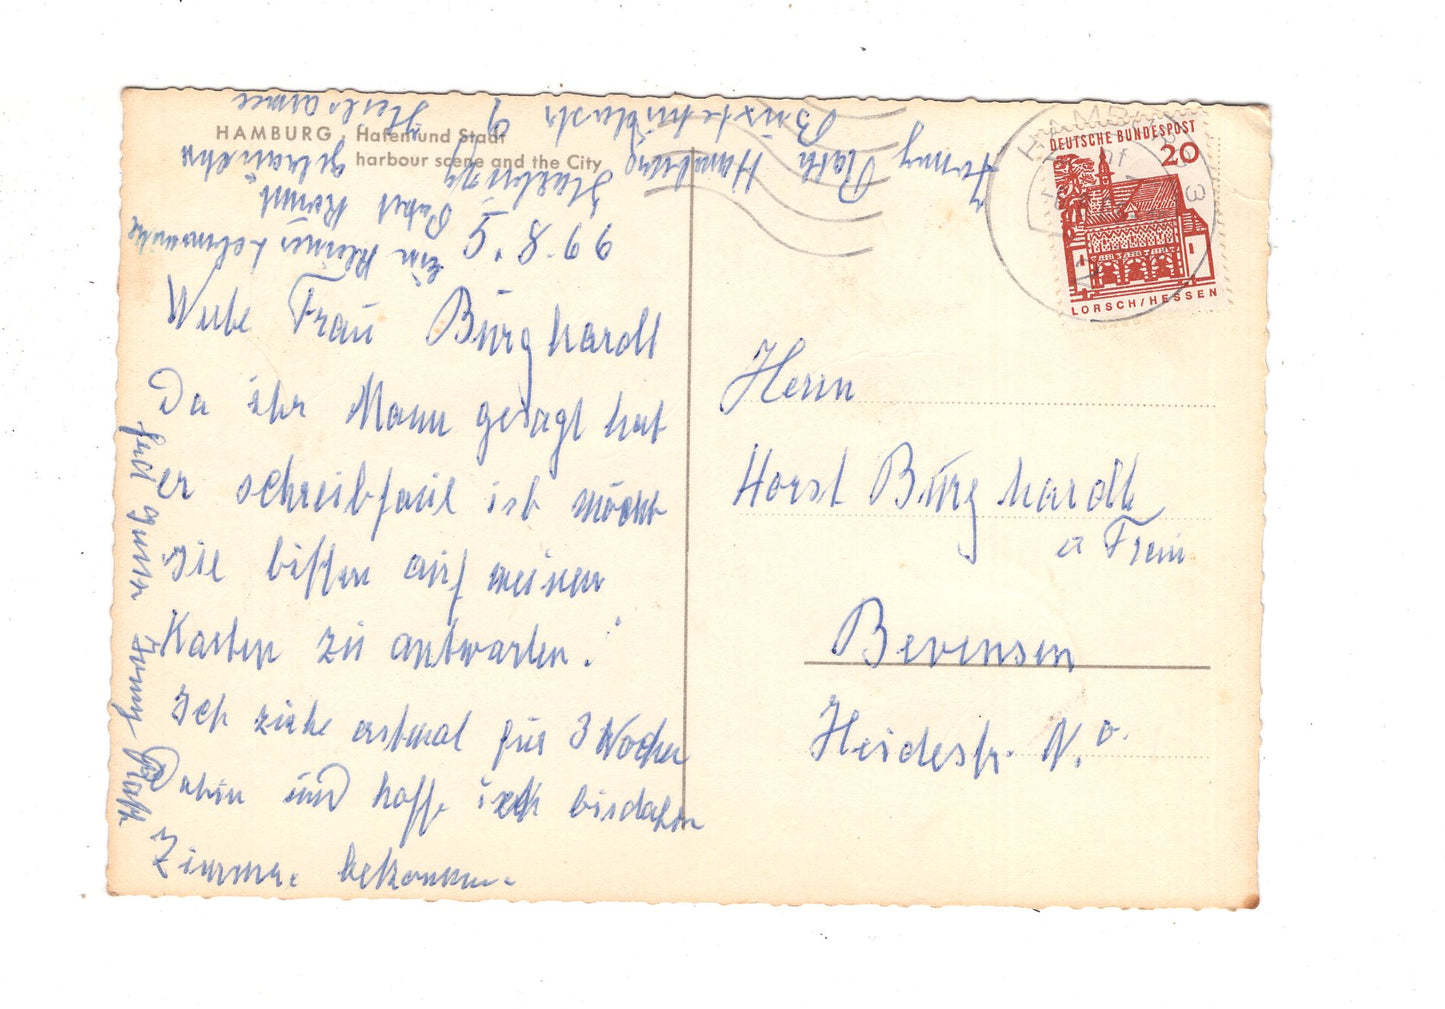 HAMBURG Hafen und Stadt
harbour scene and the City
Liebe Frau Burghardt
Da ihr Mann gesagt hat
er schreibfaul ist möcht
Sie bitten auf meinen
Karten zu antworten.
Ich ziehe erstmal für 3 Wochen
Dahin und hoffe ich bisdahin
Zimmer bekommen.
Heilsarmee
Hamburg
5. 8. 66
Ein kleines
Paket kommt
DEUTSCHE BUNDESPOST
20
LORSCH/HESSEN
HAMBURG
Herrn
Horst Burghardt
u Frau
Bevensen
Heidestr. N. 0.